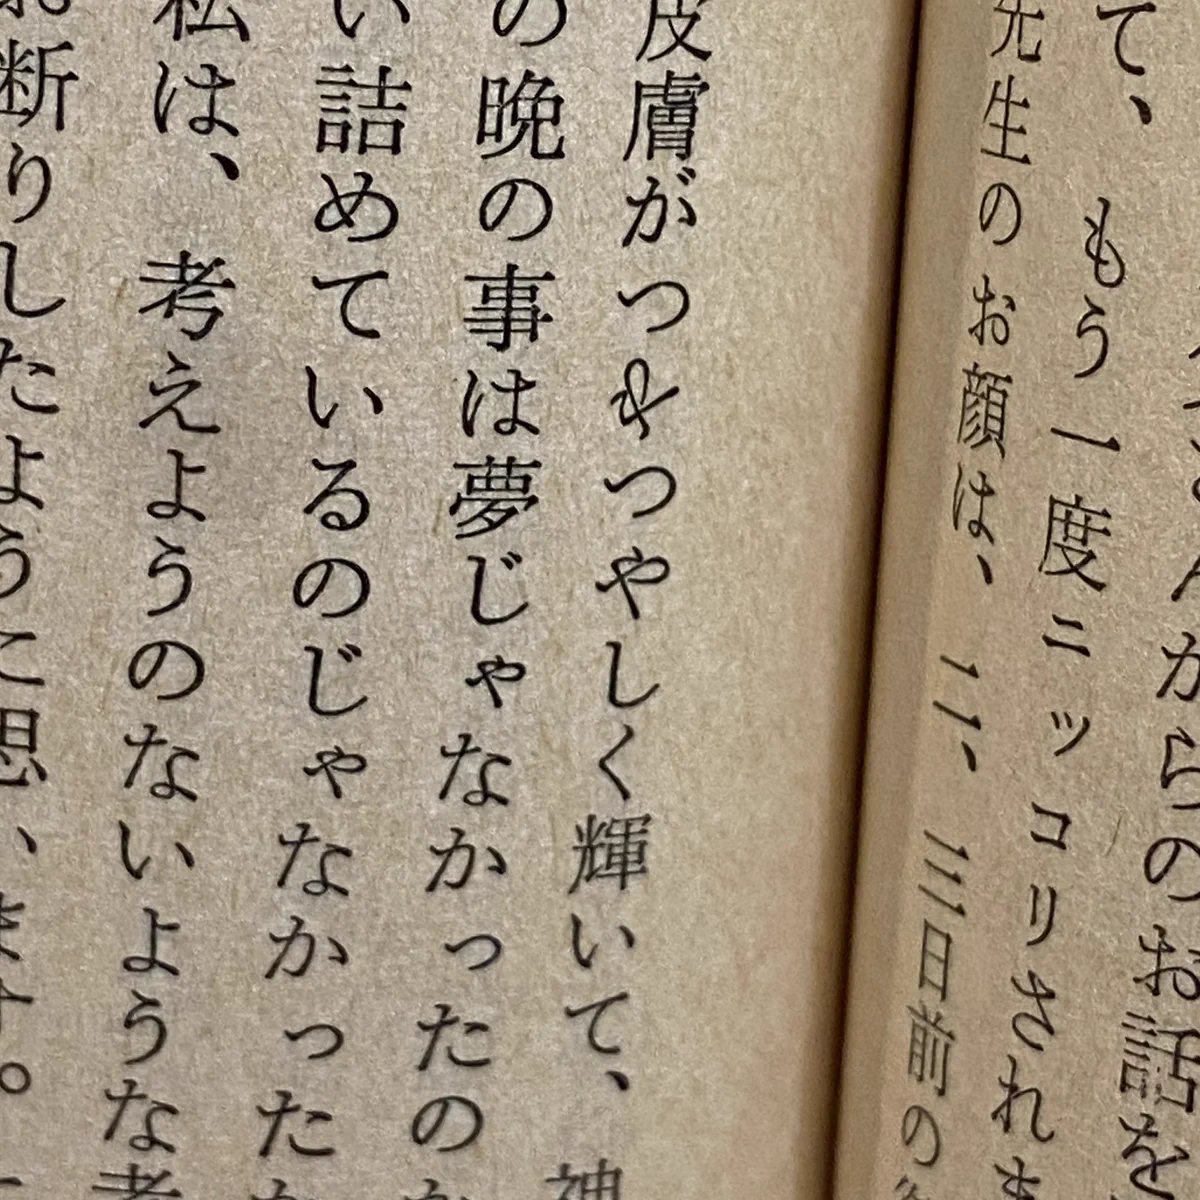 さんからのお話を
て、もう一度ニッコリされま
先生のお顔は、二、三日前の
皮膚がつやつやしく輝いて、神
の晩の事は夢じゃなかったのか
い詰めているのじゃなかった
私は、考えようのないような考
お断りしたように想います。